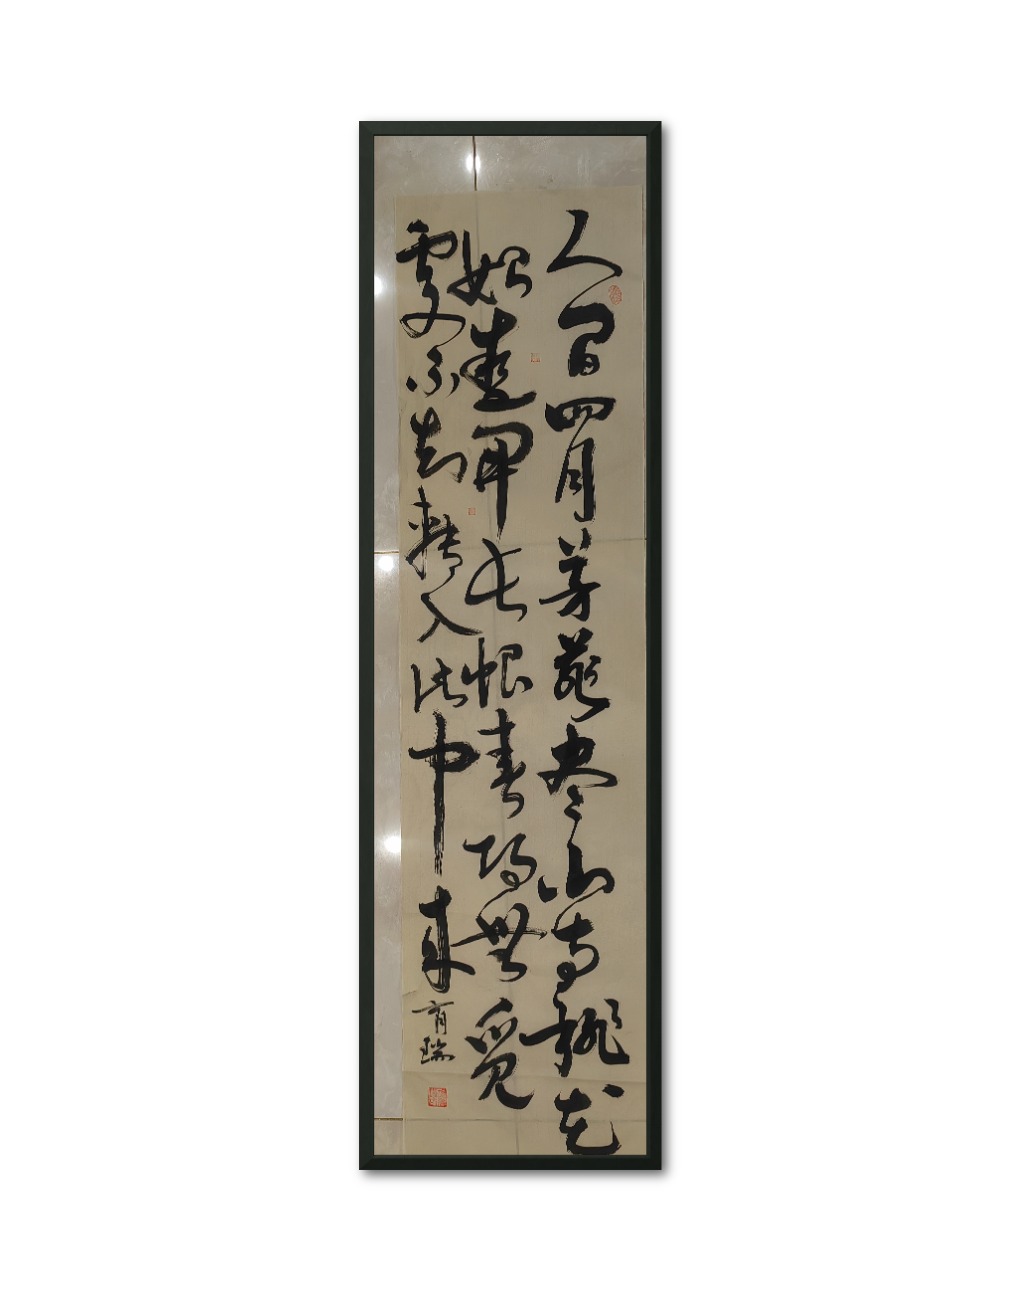 人間四月芳菲盡山寺桃花
始盛開長恨春歸無覓
處不知轉入此中來
育瑞